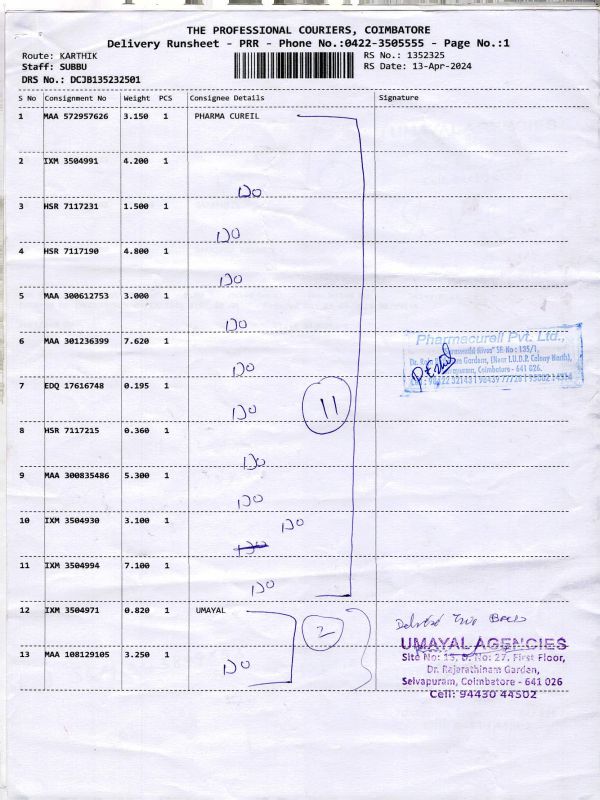 THE PROFESSIONAL COURIERS, COIMBATORE
Delivery Runsheet - PRR - Phone No.:0422-3505555 - Page No.:1
Route: KARTHIK RS No.: 1352325
Staff: SUBBU RS Date: 13-Apr-2024
DRS No.: DCJB135232501
S No Consignment No Weight PCS Consignee Details Signature
1 MAA 572957626 3.150 1 PHARMA CUREIL
2 IXM 3504991 4.200 1
DO
3 HSR 7117231 1.500 1
DO
4 HSR 7117190 4.800 1
DO
5 MAA 300612753 3.000 1
DO
6 MAA 301236399 7.620 1
DO
7 EDQ 17616748 0.195 1
DO
11
8 HSR 7117215 0.360 1
DO
9 MAA 300835486 5.300 1
DO
10 IXM 3504930 3.100 1
DO
DO
11 IXM 3504994 7.100 1
DO
Pharmacureil Pvt. Ltd.,
SF. No : 135/1,
Gardens, (Near T.U.D.P. Colony North),
Coimbatore - 641 026.
12 IXM 3504971 0.820 1 UMAYAL
2
13 MAA 108129105 3.250 1
DO
UMAYAL AGENCIES
Site No: 15, D. No: 27, First Floor,
Dr. Rajarathinam Garden,
Selvapuram, Coimbatore - 641 026
Cell: 94430 44502